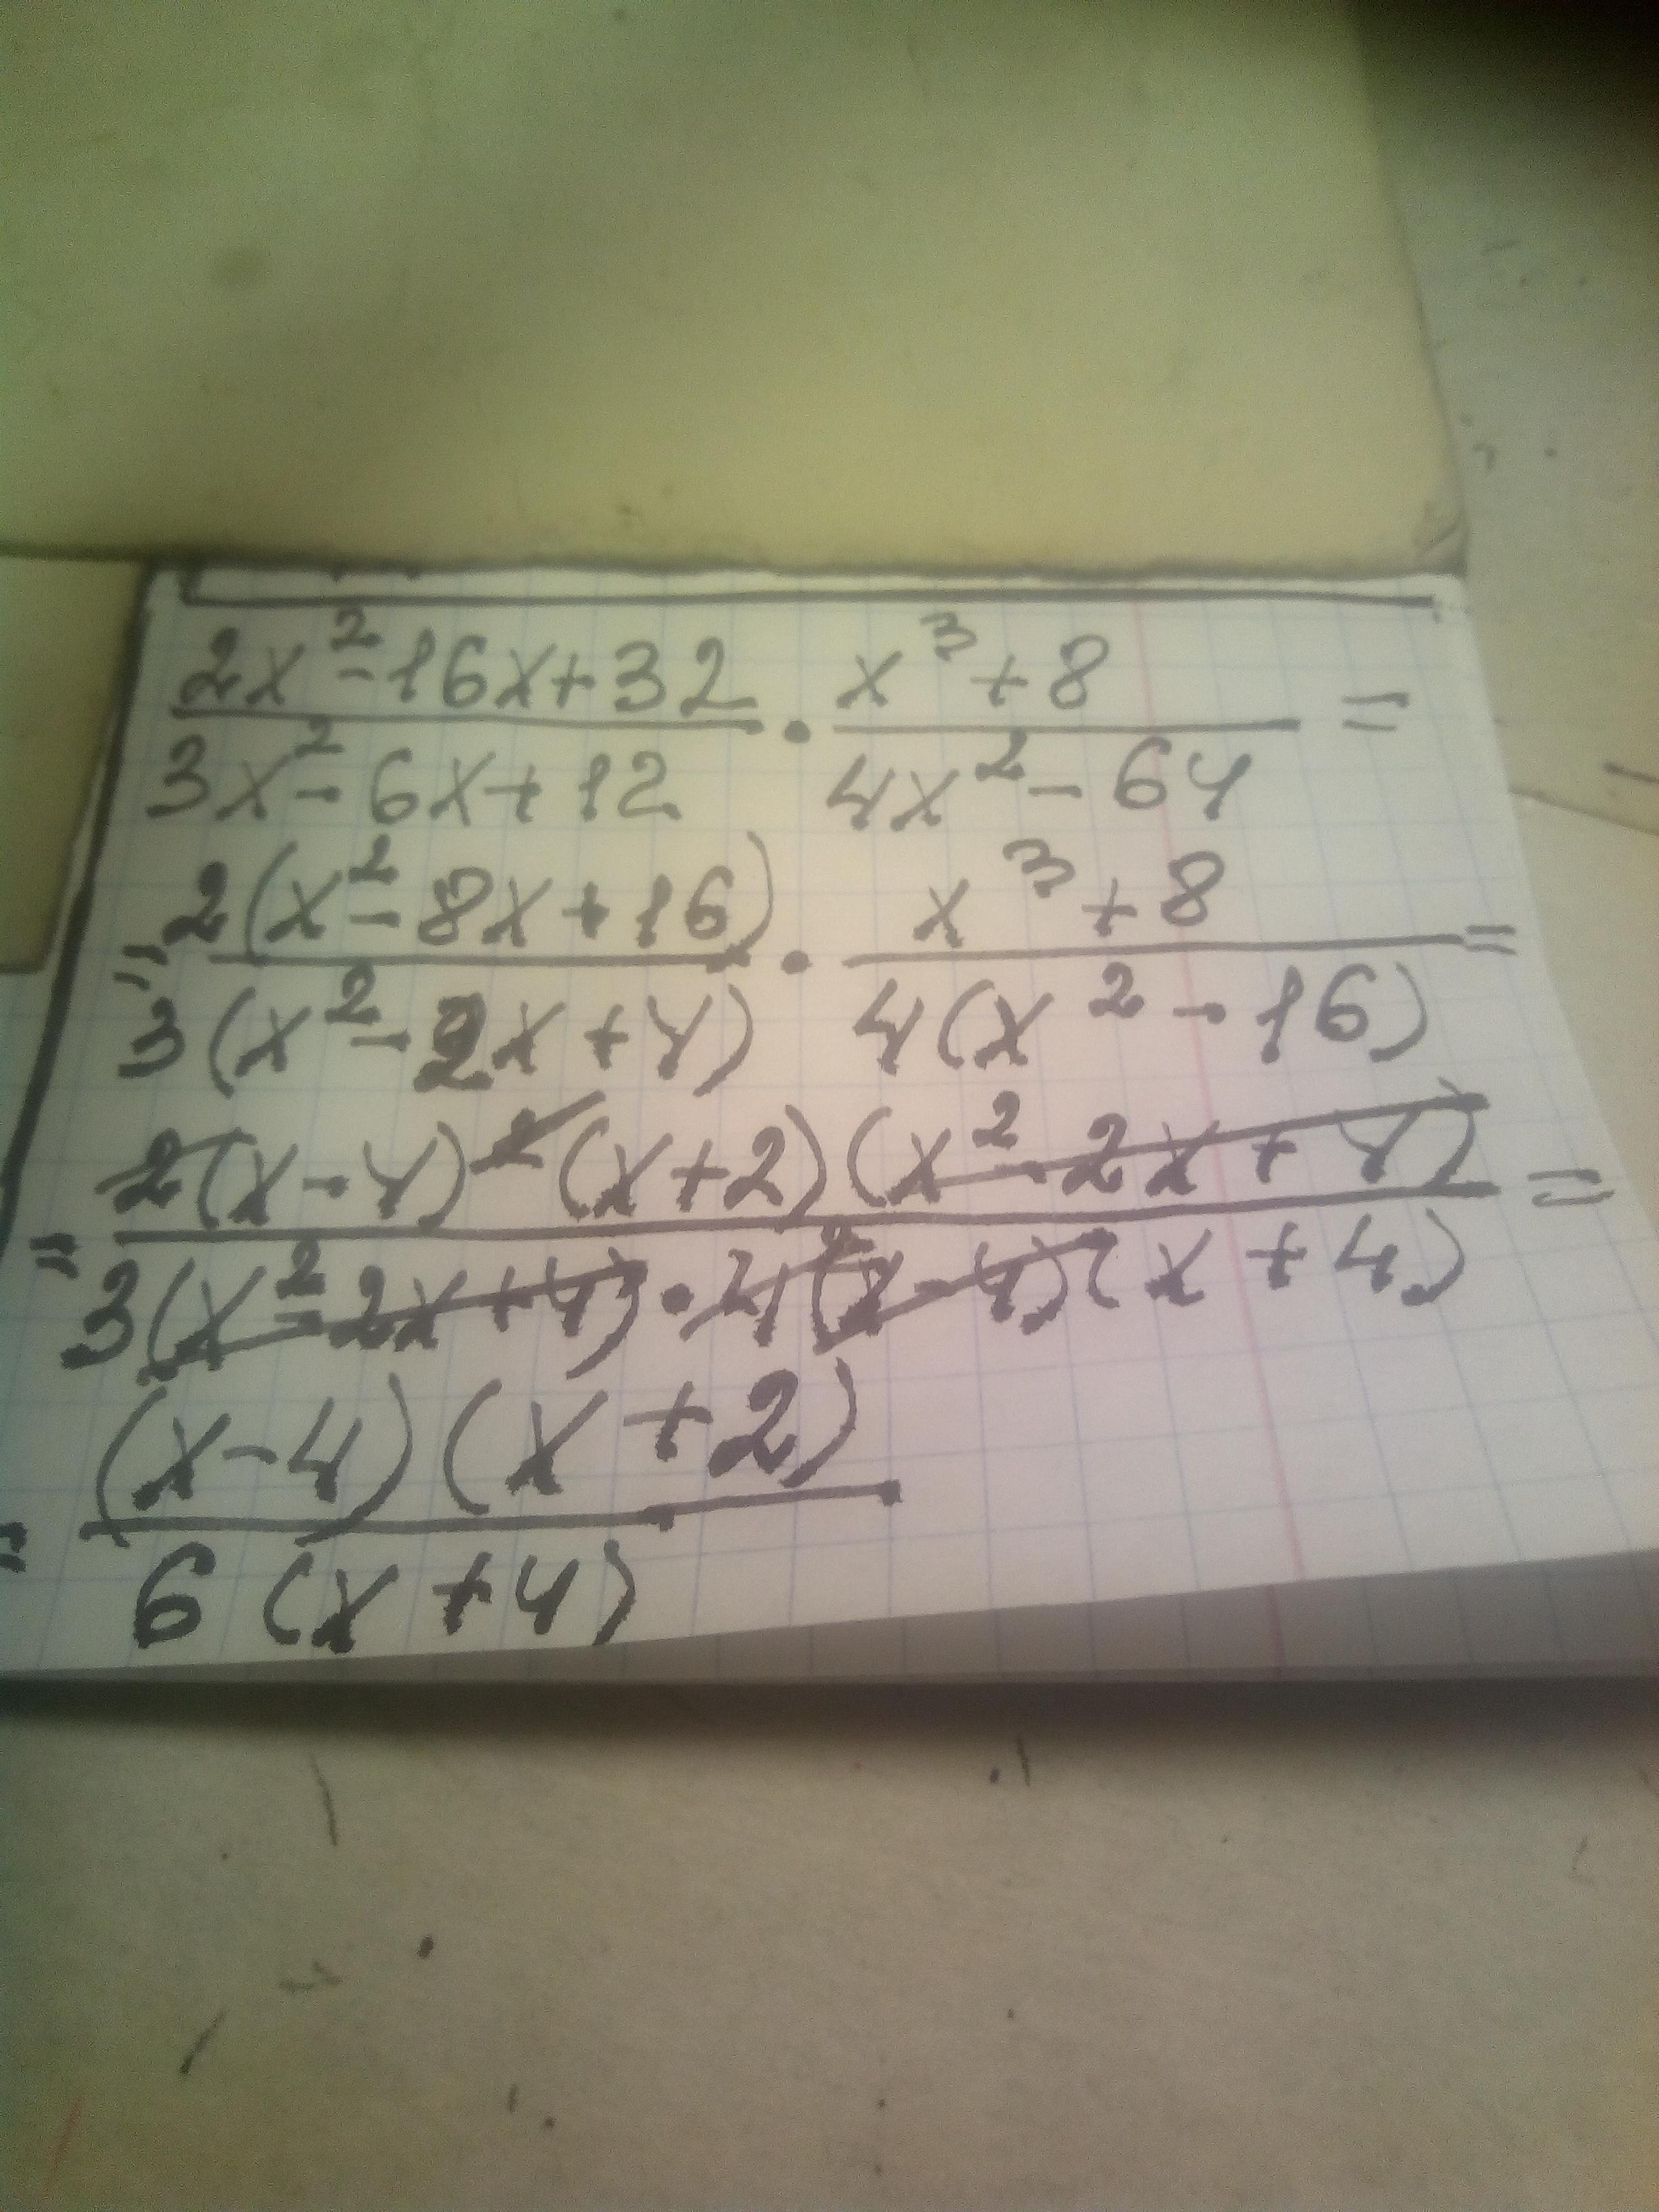 (2x² - 16x + 32)/(3x² - 6x + 12) · (x³ + 8)/(4x² - 64) =
= 2(x² - 8x + 16)/3(x² - 2x + 4) · (x³ + 8)/4(x² - 16) =
= 2(x - 4)²(x + 2)(x² - 2x + 4)/3(x² - 2x + 4) · 4²(x - 4)(x + 4) =
= (x - 4)(x + 2)/6(x + 4)